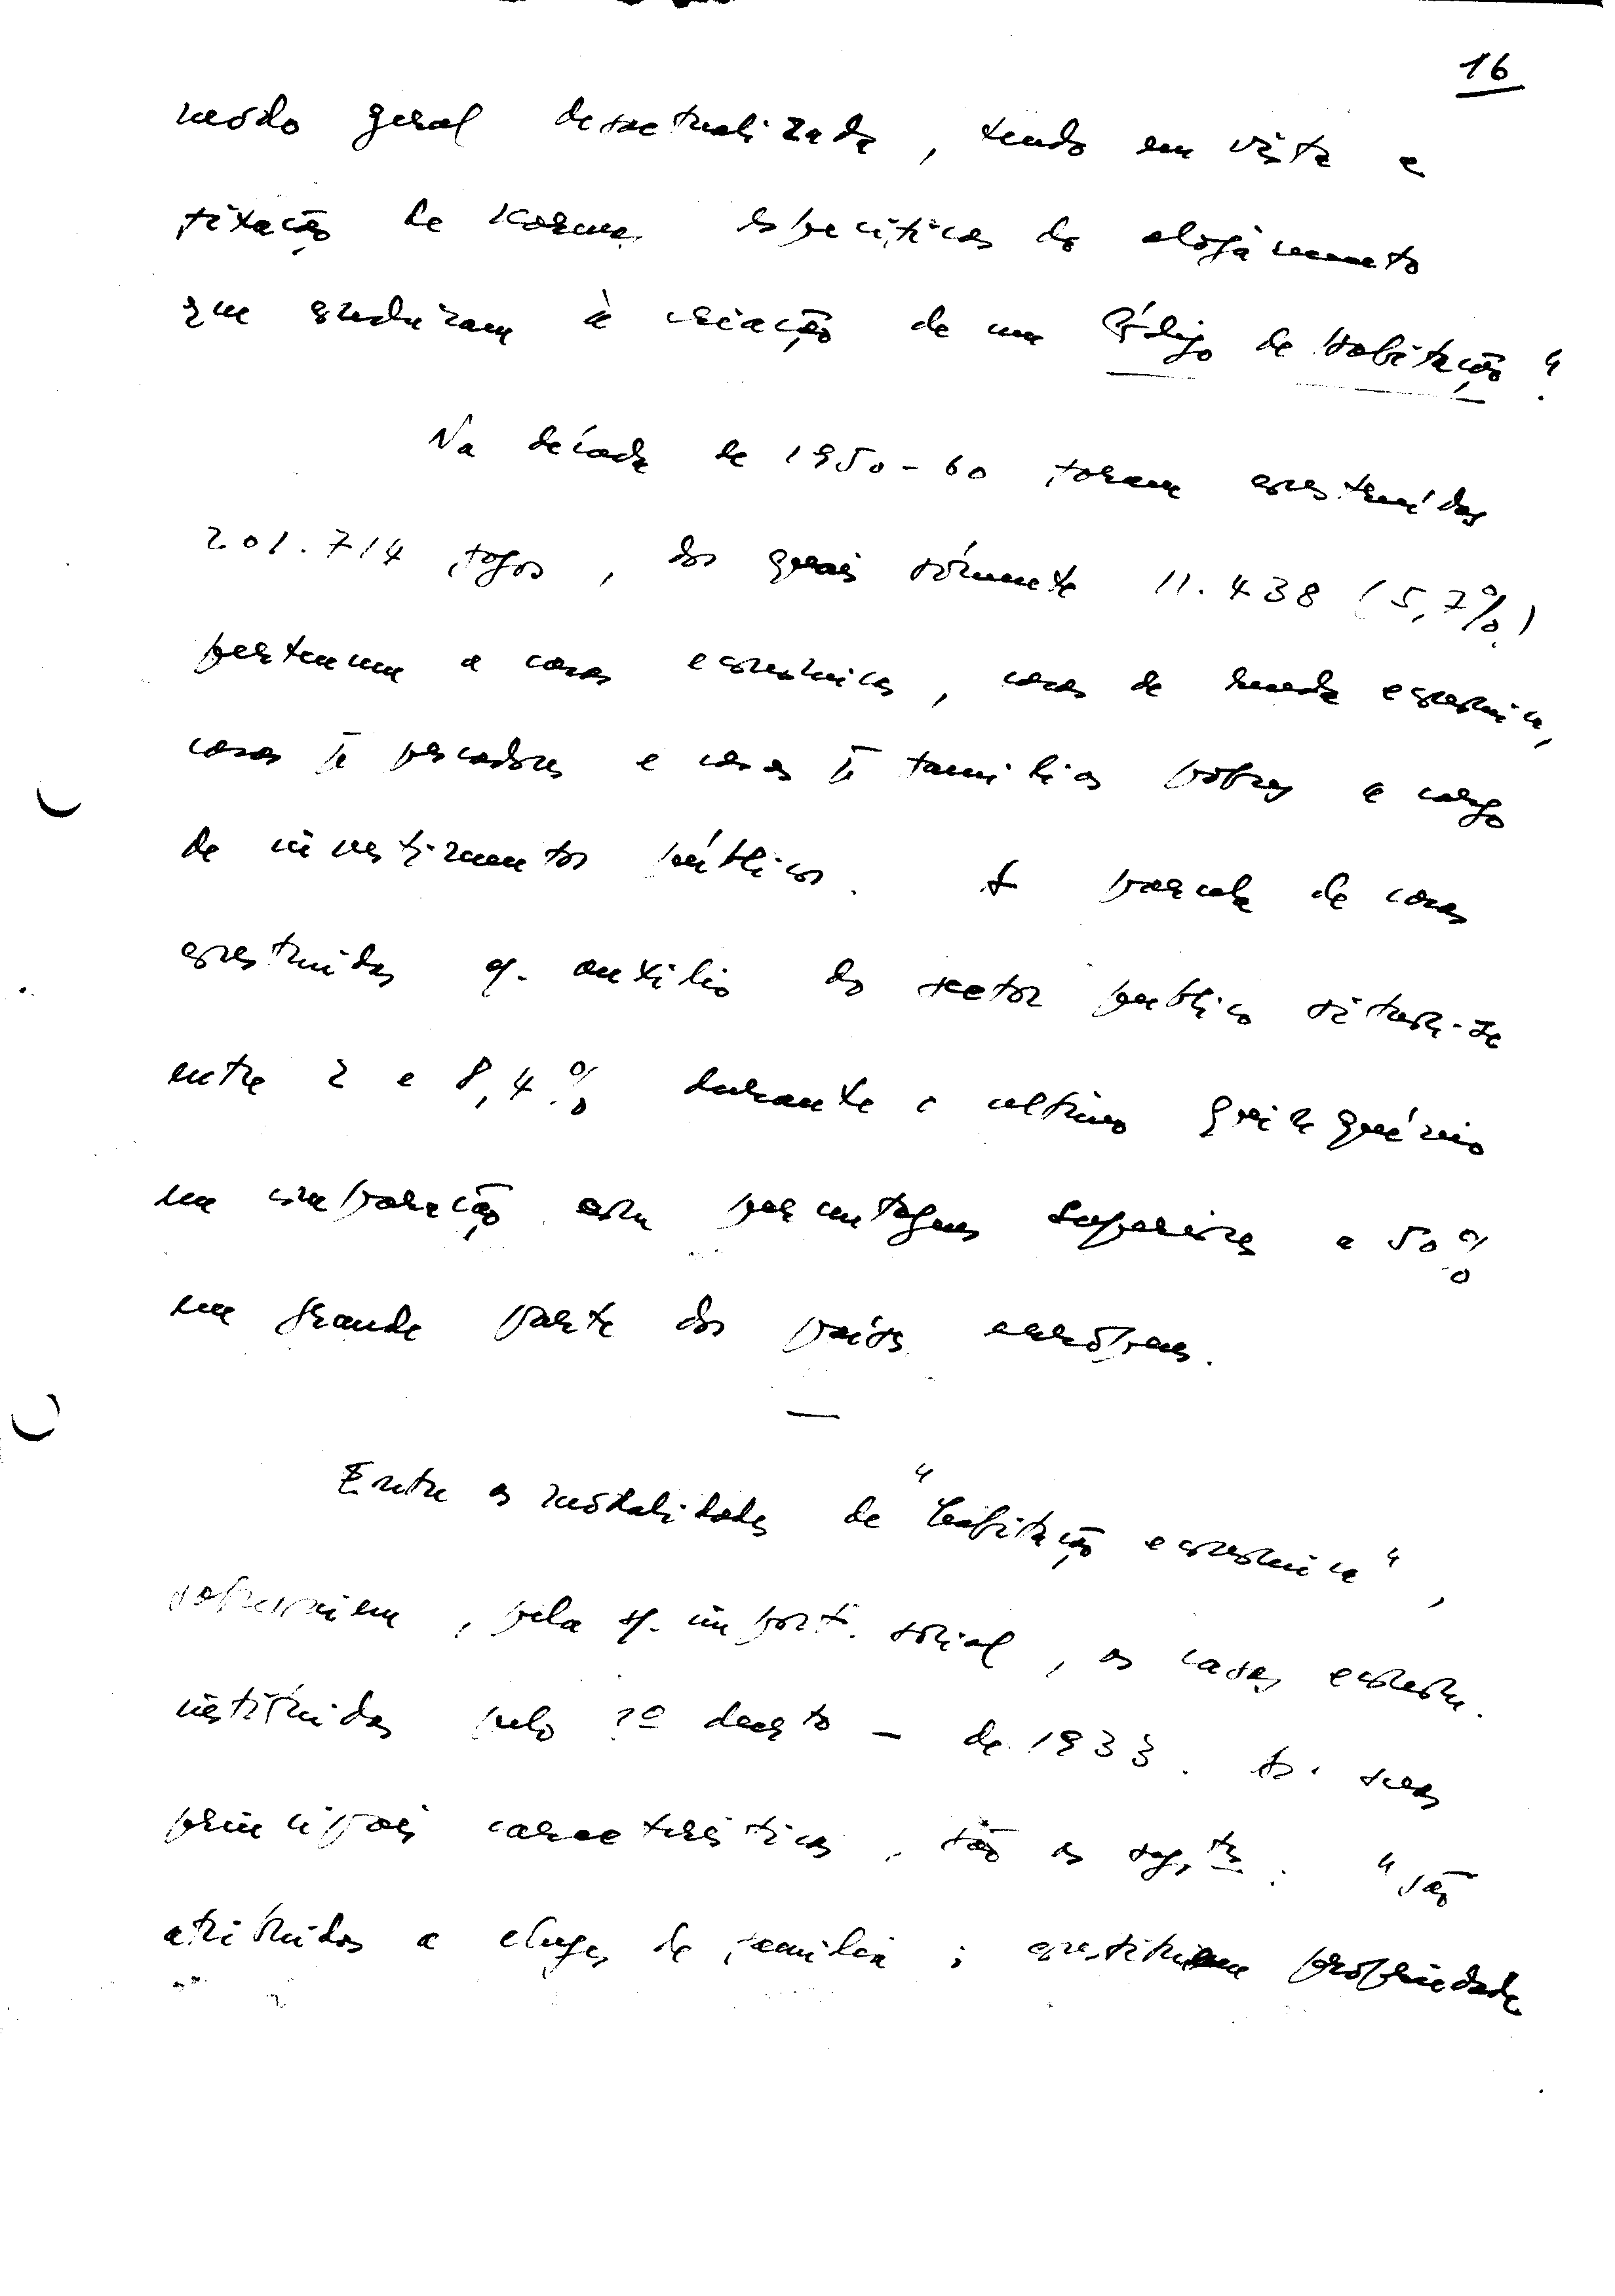 16
modo geral desactualizada, tendo em vista a
fixação de normas específicas do alojamento
que conduzam à criação de um Código de Habitação".
Na década de 1950-60 foram construídos
201.714 fogos, dos quais sómente 11.438 (5,7%)
pertencem a casas económicas, casas de renda económica,
casas p. pescadores e casas p. famílias pobres a cargo
de investimentos públicos. A parcela de casas
construídas c. auxílio do sector público situa-se
entre 2 e 8,4% durante o último quinquénio
em comparação com percentagens superiores a 50%
em grande parte dos países europeus.
—
Entre as modalidades de "habitação económica",
sobressaem, pela s. import. social, as casas económ.
instituídas pelo decreto - de 1933. As suas
principais características, são as seg.tes: "são
atribuídas a chefes de família; constituem propriedade